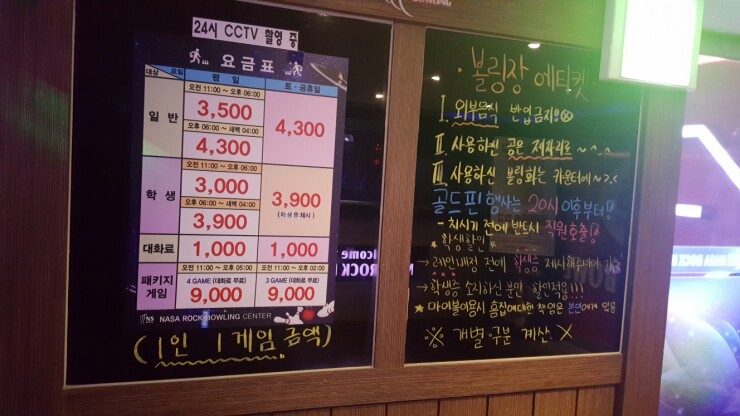 BOWLING
24시 CCTV 촬영 중
요금표
대상 요일 평 일 토·공휴일
일 반
오전 11:00 ~ 오후 06:00
3,500
오후 06:00 ~ 새벽 04:00
4,300
4,300
학 생
오전 11:00 ~ 오후 06:00
3,000
오후 06:00 ~ 새벽 04:00
3,900
3,900
(학생증 제시)
대화료 1,000 1,000
패키지 게임
오전 11:00 ~ 오후 05:00
4 GAME (대화료 무료)
9,000
오전 11:00 ~ 오후 02:00
3 GAME (대화료 무료)
9,000
NASA ROCK BOWLING CENTER
(1인 1게임 금액)
· 볼링장 에티켓
I. 외부음식 반입금지!
II. 사용하신 공은 제자리로 ~^.^
III. 사용하신 볼링화는 카운터에~>.<
골드핀 행사는 20시 이후부터!
- 치시기 전에 반드시 직원호출!
* 학생할인 *
→ 레인배정 전에 학생증 제시해주셔야
→ 학생증 소지하신 분만 할인적용!!!
* 마이볼 이용시 흠집에대한 책임은 본인에게 있음
※ 개별 구분 계산 X